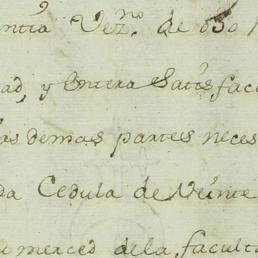 Vez.no de
ad, y entera Satisfac
as demas partes neces
da Cedula de Veinte
merced dela faculta